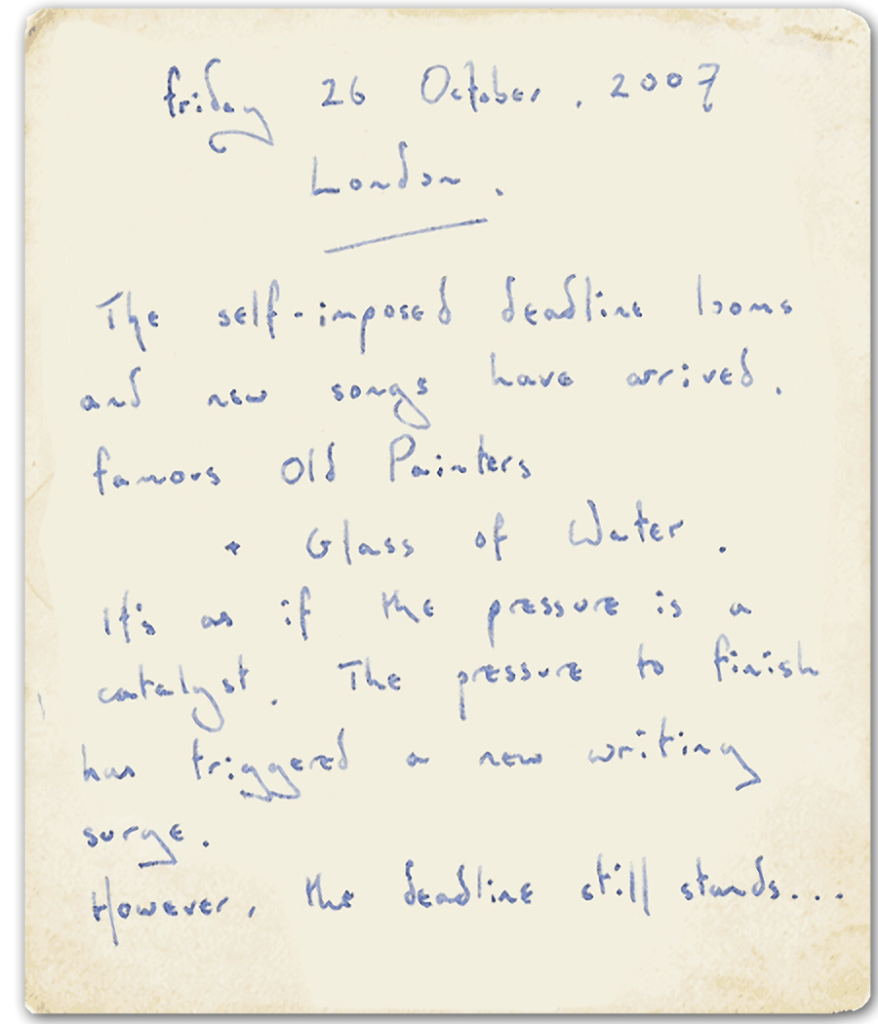 Friday 26 October, 2007
London.
The self-imposed deadline looms
and new songs have arrived.
Famous Old Painters
+ Glass of Water.
It's as if the pressure is a
catalyst. The pressure to finish
has triggered a new writing
surge.
However, the deadline still stands...